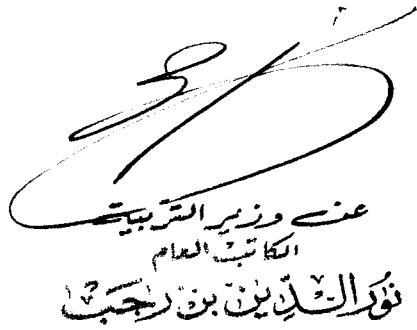 عن وزير التربية
الكاتب العام
نُور الدّين بن رجب